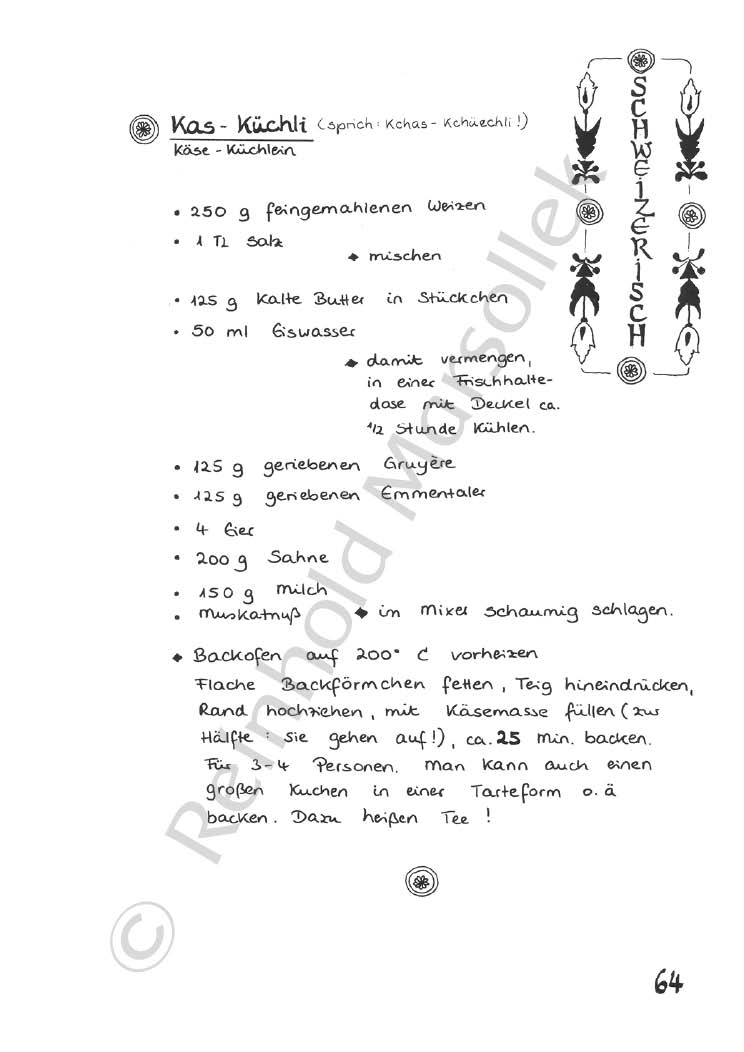 Kas - Küchli (sprich: Kchas - Kchüechli!)
Käse - Küchlein
SCHWEIZERISCH
• 250 g feingemahlenen Weizen
• 1 TL Salz
◆ mischen
• 125 g kalte Butter in Stückchen
• 50 ml Eiswasser
◆ damit vermengen,
in einer Frischhalte-
dose mit Deckel ca.
1/2 Stunde kühlen.
• 125 g geriebenen Gruyère
• 125 g geriebenen Emmentaler
• 4 Eier
• 200 g Sahne
• 150 g Milch
• Muskatnuß ◆ im Mixer schaumig schlagen.
◆ Backofen auf 200° C vorheizen
Flache Backförmchen fetten, Teig hineindrücken,
Rand hochziehen, mit Käsemasse füllen (zur
Hälfte: sie gehen auf!), ca. 25 min. backen.
Für 3-4 Personen. Man kann auch einen
großen Kuchen in einer Tarteform o. ä
backen. Dazu heißen Tee !
© Reinhold Marsollek
64